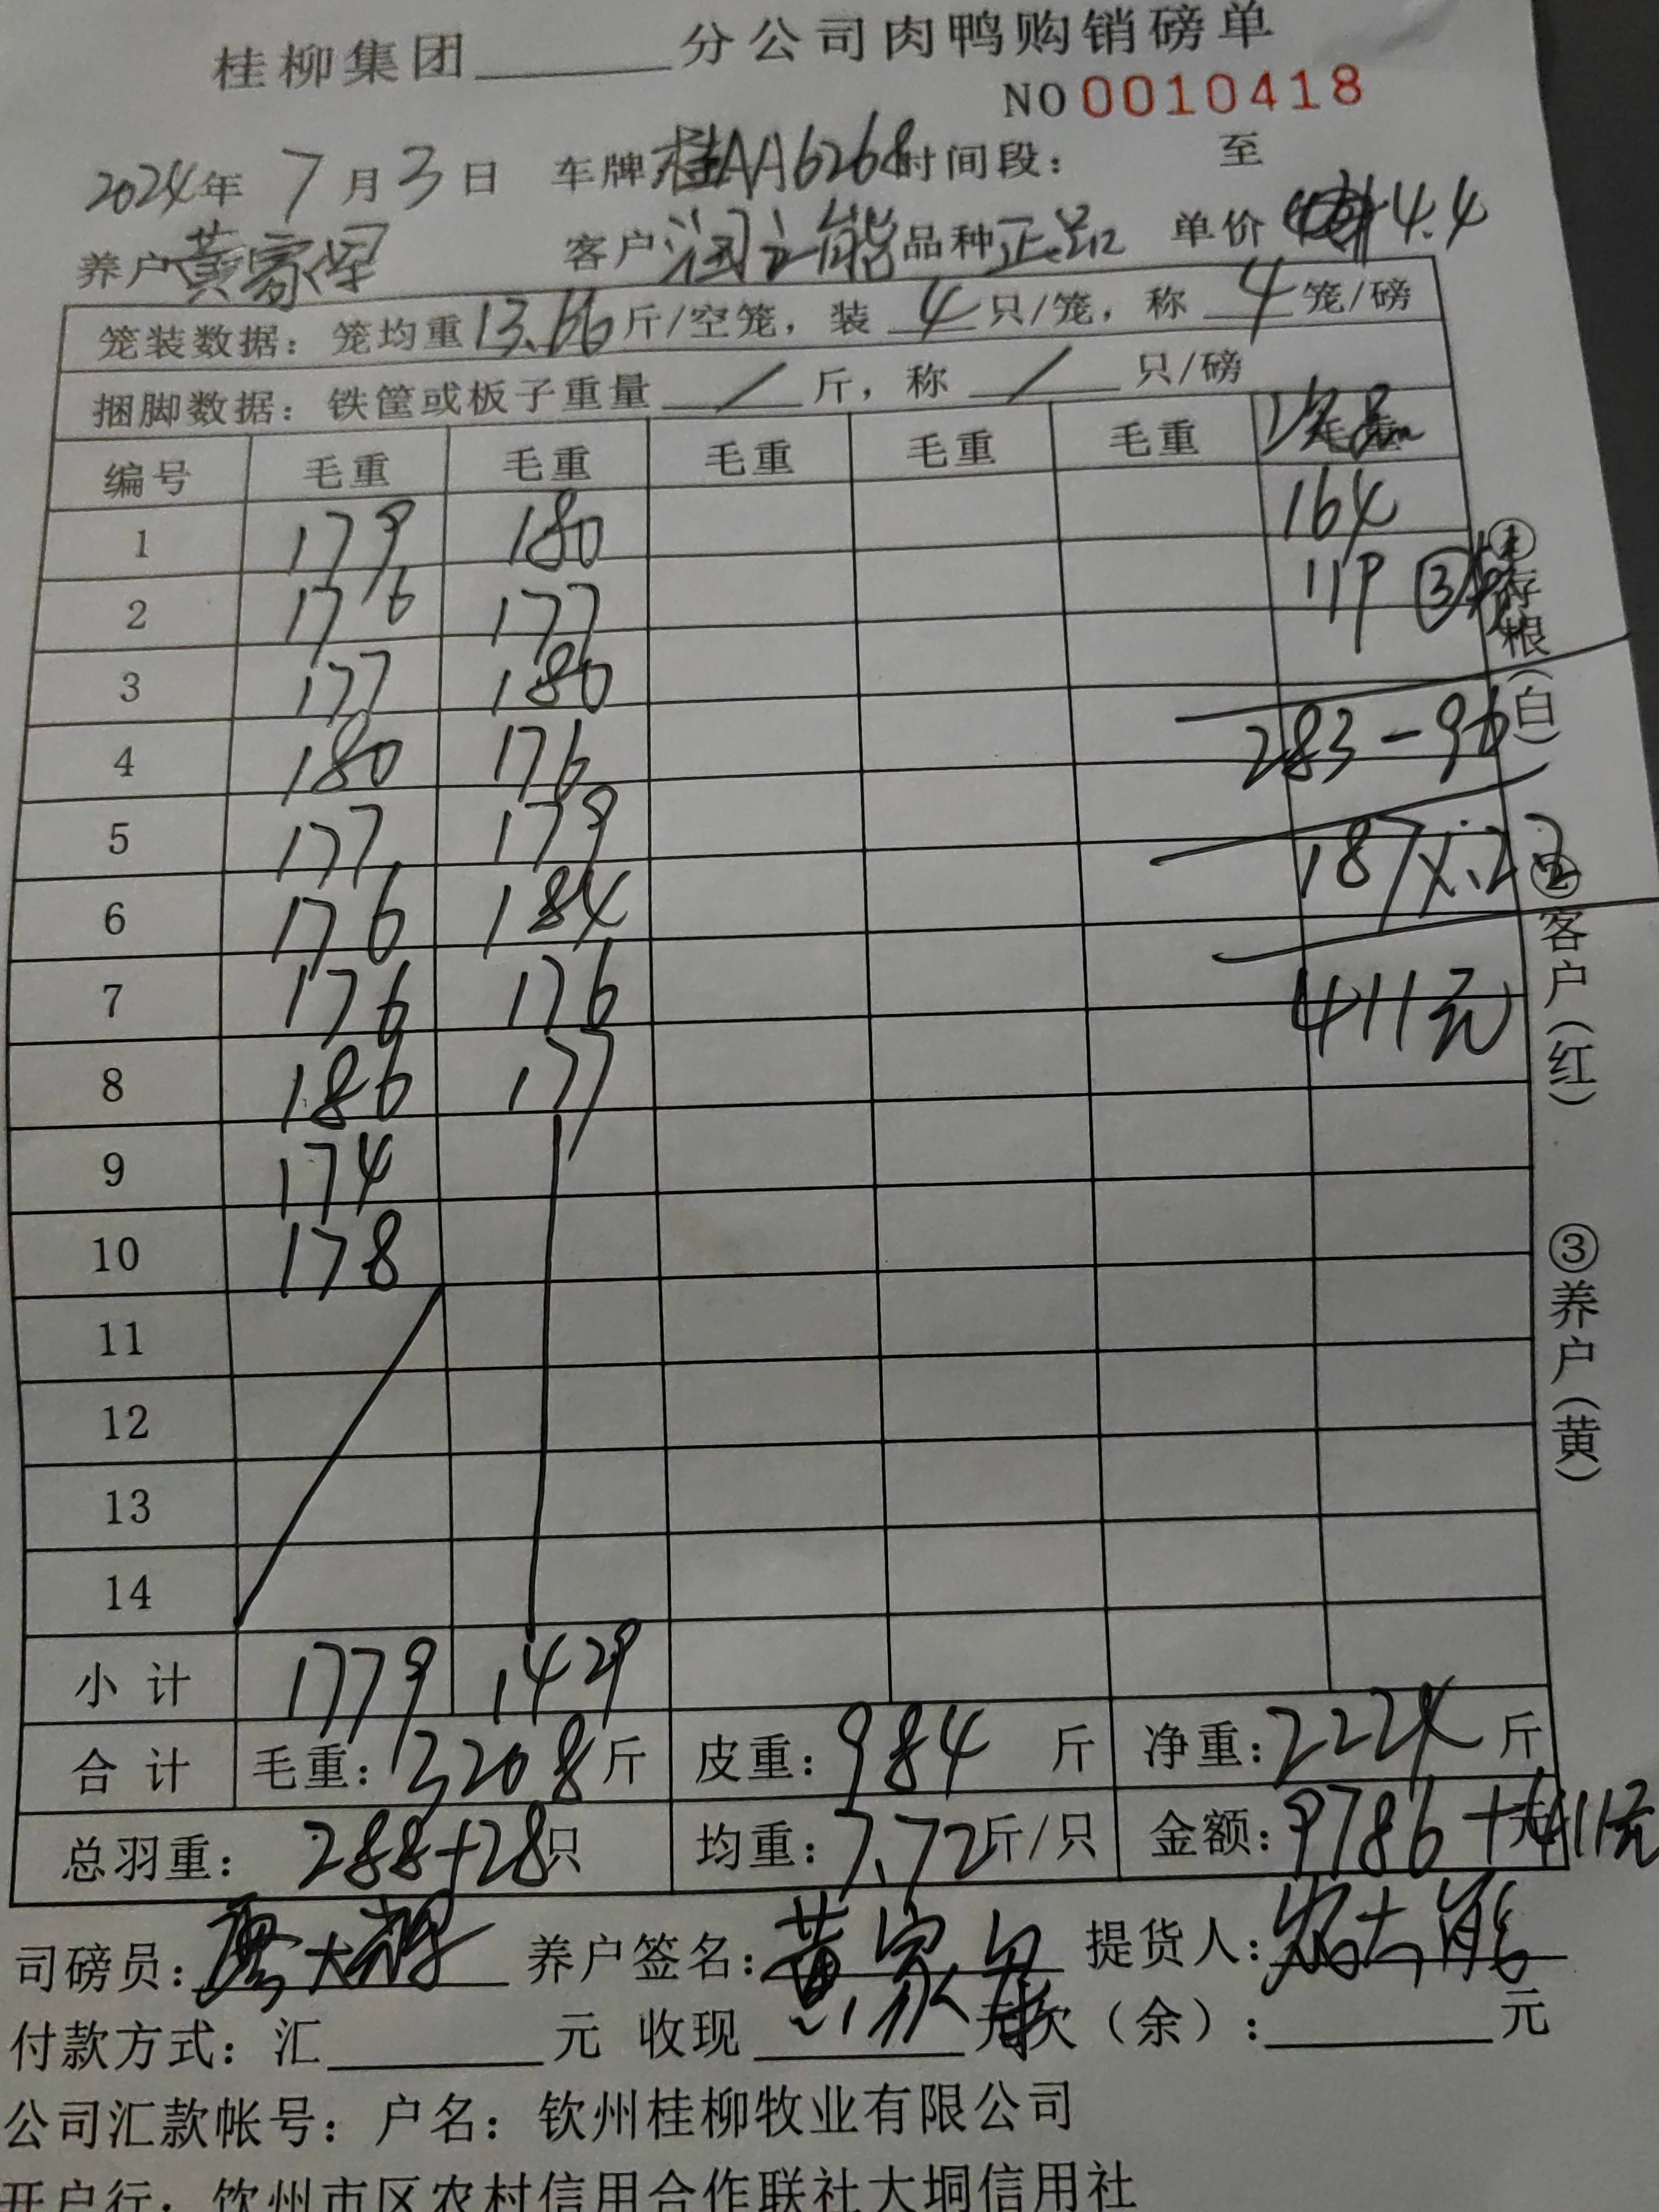 桂柳集团______分公司肉鸭购销磅单
NO 0010418
2024年 7 月 3 日 车牌 桂AA6268 时间段: 至
养户 黄家保 客户 润之能 品种 正品 单价 4.4
笼装数据: 笼均重13.66斤/空笼, 装 4 只/笼, 称 4 笼/磅
捆脚数据: 铁筐或板子重量 / 斤, 称 / 只/磅
编号 毛重 毛重 毛重 毛重 毛重 毛重 次品
1 179 180 164
2 176 177 119 ③
3 177 180
4 180 176 283-96
5 177 179 187×2.2
6 176 184
7 176 176 411元
8 186 177
9 174
10 178
11
12
13
14
小计 1779 1429
合计 毛重: 3208斤 皮重: 984 斤 净重: 2224 斤
总羽重: 288+28只 均重: 7.72斤/只 金额: 9786+411元
司磅员: 养户签名: 黄家 提货人:
付款方式: 汇______元 收现______元欠(余):______元
公司汇款帐号: 户名: 钦州桂柳牧业有限公司
开户行: 钦州市区农村信用合作联社大垌信用社
①存根(白)
②客户(红)
③养户(黄)